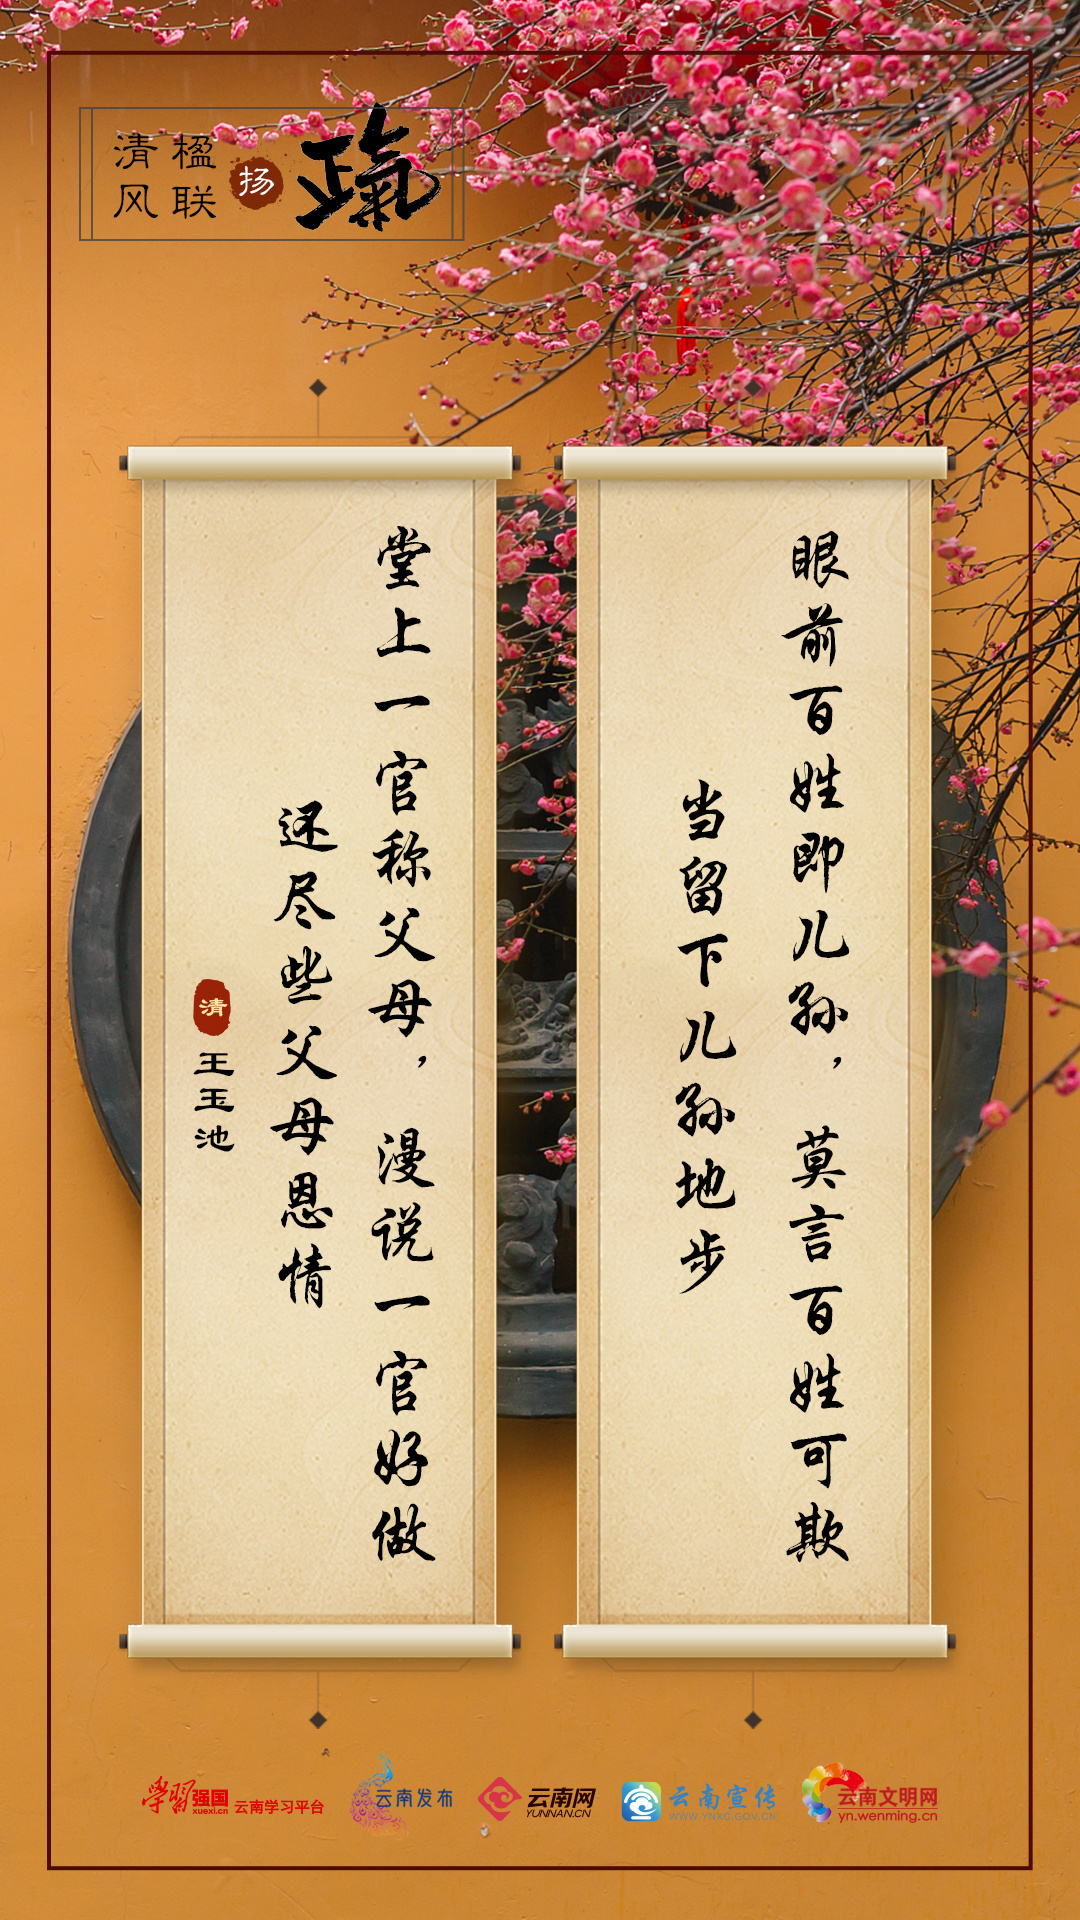 楹联
清风
扬
正氣
眼前百姓即儿孙，莫言百姓可欺
当留下儿孙地步
堂上一官称父母，漫说一官好做
还尽些父母恩情
清
王玉池
学习强国
xuexi.cn
云南学习平台
云南发布
云南网
YUNNAN.CN
云南宣传
WWW.YNXC.GOV.CN
云南文明网
yn.wenming.cn